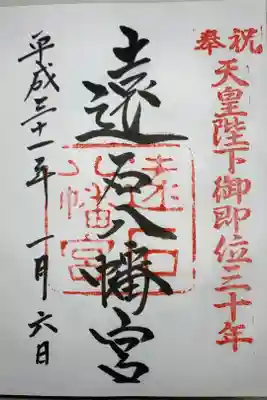 奉祝
天皇陛下御即位三十年
遠石八幡宮
遠石
八幡宮
平成三十一年 一月六日